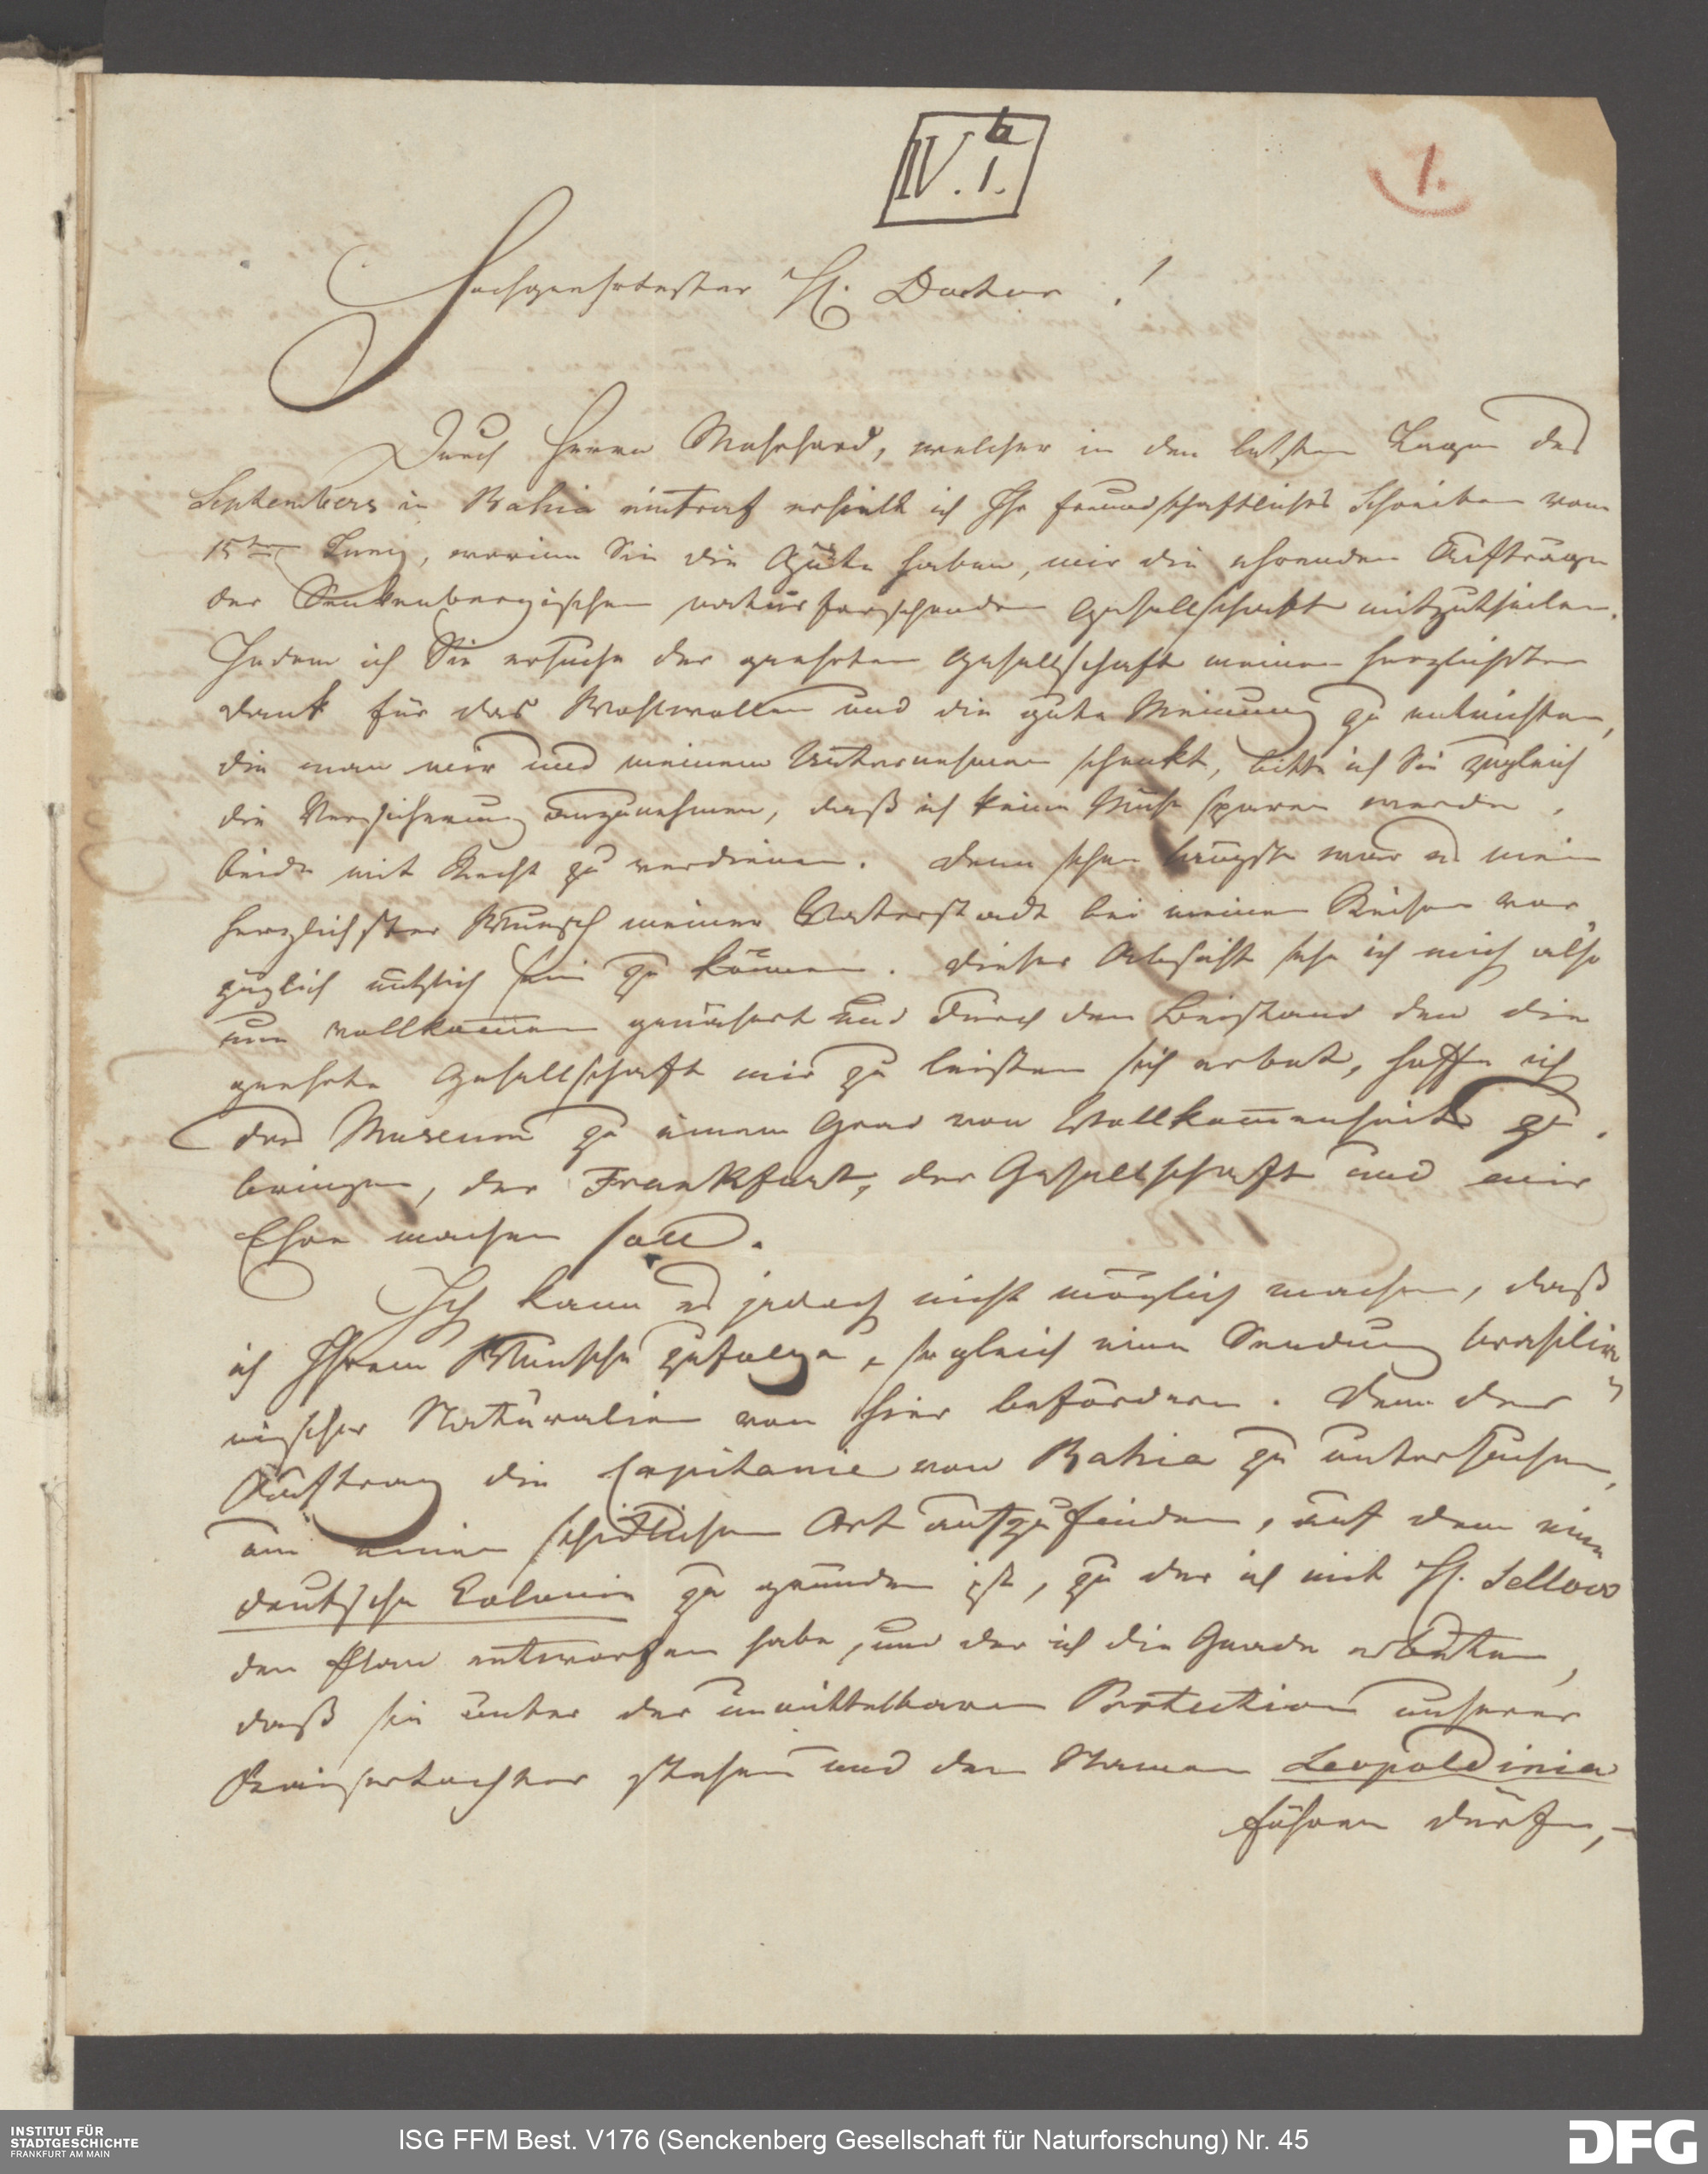 IV. 1. a
1.
Hochgeehrtester H. Doctor !
Durch Herrn Mohrhard, welcher in den letzten Tagen des
Septembers in Bahia eintraf erhielt ich Ihr freundschaftliches Schreiben vom
15ten Juny, worinn Sie die Güte haben, mir die ehrenden Aufträge
der Senkenbergischen naturforschenden Gesellschaft mitzutheilen.
Indem ich Sie ersuche der geehrten Gesellschaft meinen herzlichsten
Dank für das Wohlwollen und die gute Meinung zu entrichten,
die man mir und meinem Unternehmen schenkt, bitte ich Sie zugleich
die Versicherung anzunehmen, daß ich keine Mühe sparen werde,
beide mit Recht zu verdienen. Denn schon längst war es mein
herzlichster Wunsch meiner Vaterstadt bei meinen Reisen vor
züglich nützlich sein zu können. Dieser Absicht sehe ich mich also
nun vollkommen genähert und durch den Beistand den die
geehrte Gesellschaft mir zu leisten sich erbot, hoffe ich
das Museum zu einem Grad von Vollkommenheit zu
bringen, der Frankfurt, der Gesellschaft und mir
Ehre machen soll.
Ich kann es jedoch nicht möglich machen, daß
ich Ihrem Wunsche zufolge, sogleich eine Sendung brasilia
nischer Naturalien von hier befördern. Denn der
Auftrag die Capitanie von Bahia zu untersuchen,
um einen schicklichen Ort aufzufinden, auf dem eine
deutsche Colonie zu gründen ist, zu der ich mit H. Sellow
den Plan entworfen habe, und der ich die Gnade erbeten,
daß sie unter der unmittelbaren Protection unserer
Kaisertochter stehen und den Namen Leopoldinia
führen dürfe,
INSTITUT FÜR
STADTGESCHICHTE
FRANKFURT AM MAIN
ISG FFM Best. V176 (Senckenberg Gesellschaft für Naturforschung) Nr. 45
DFG